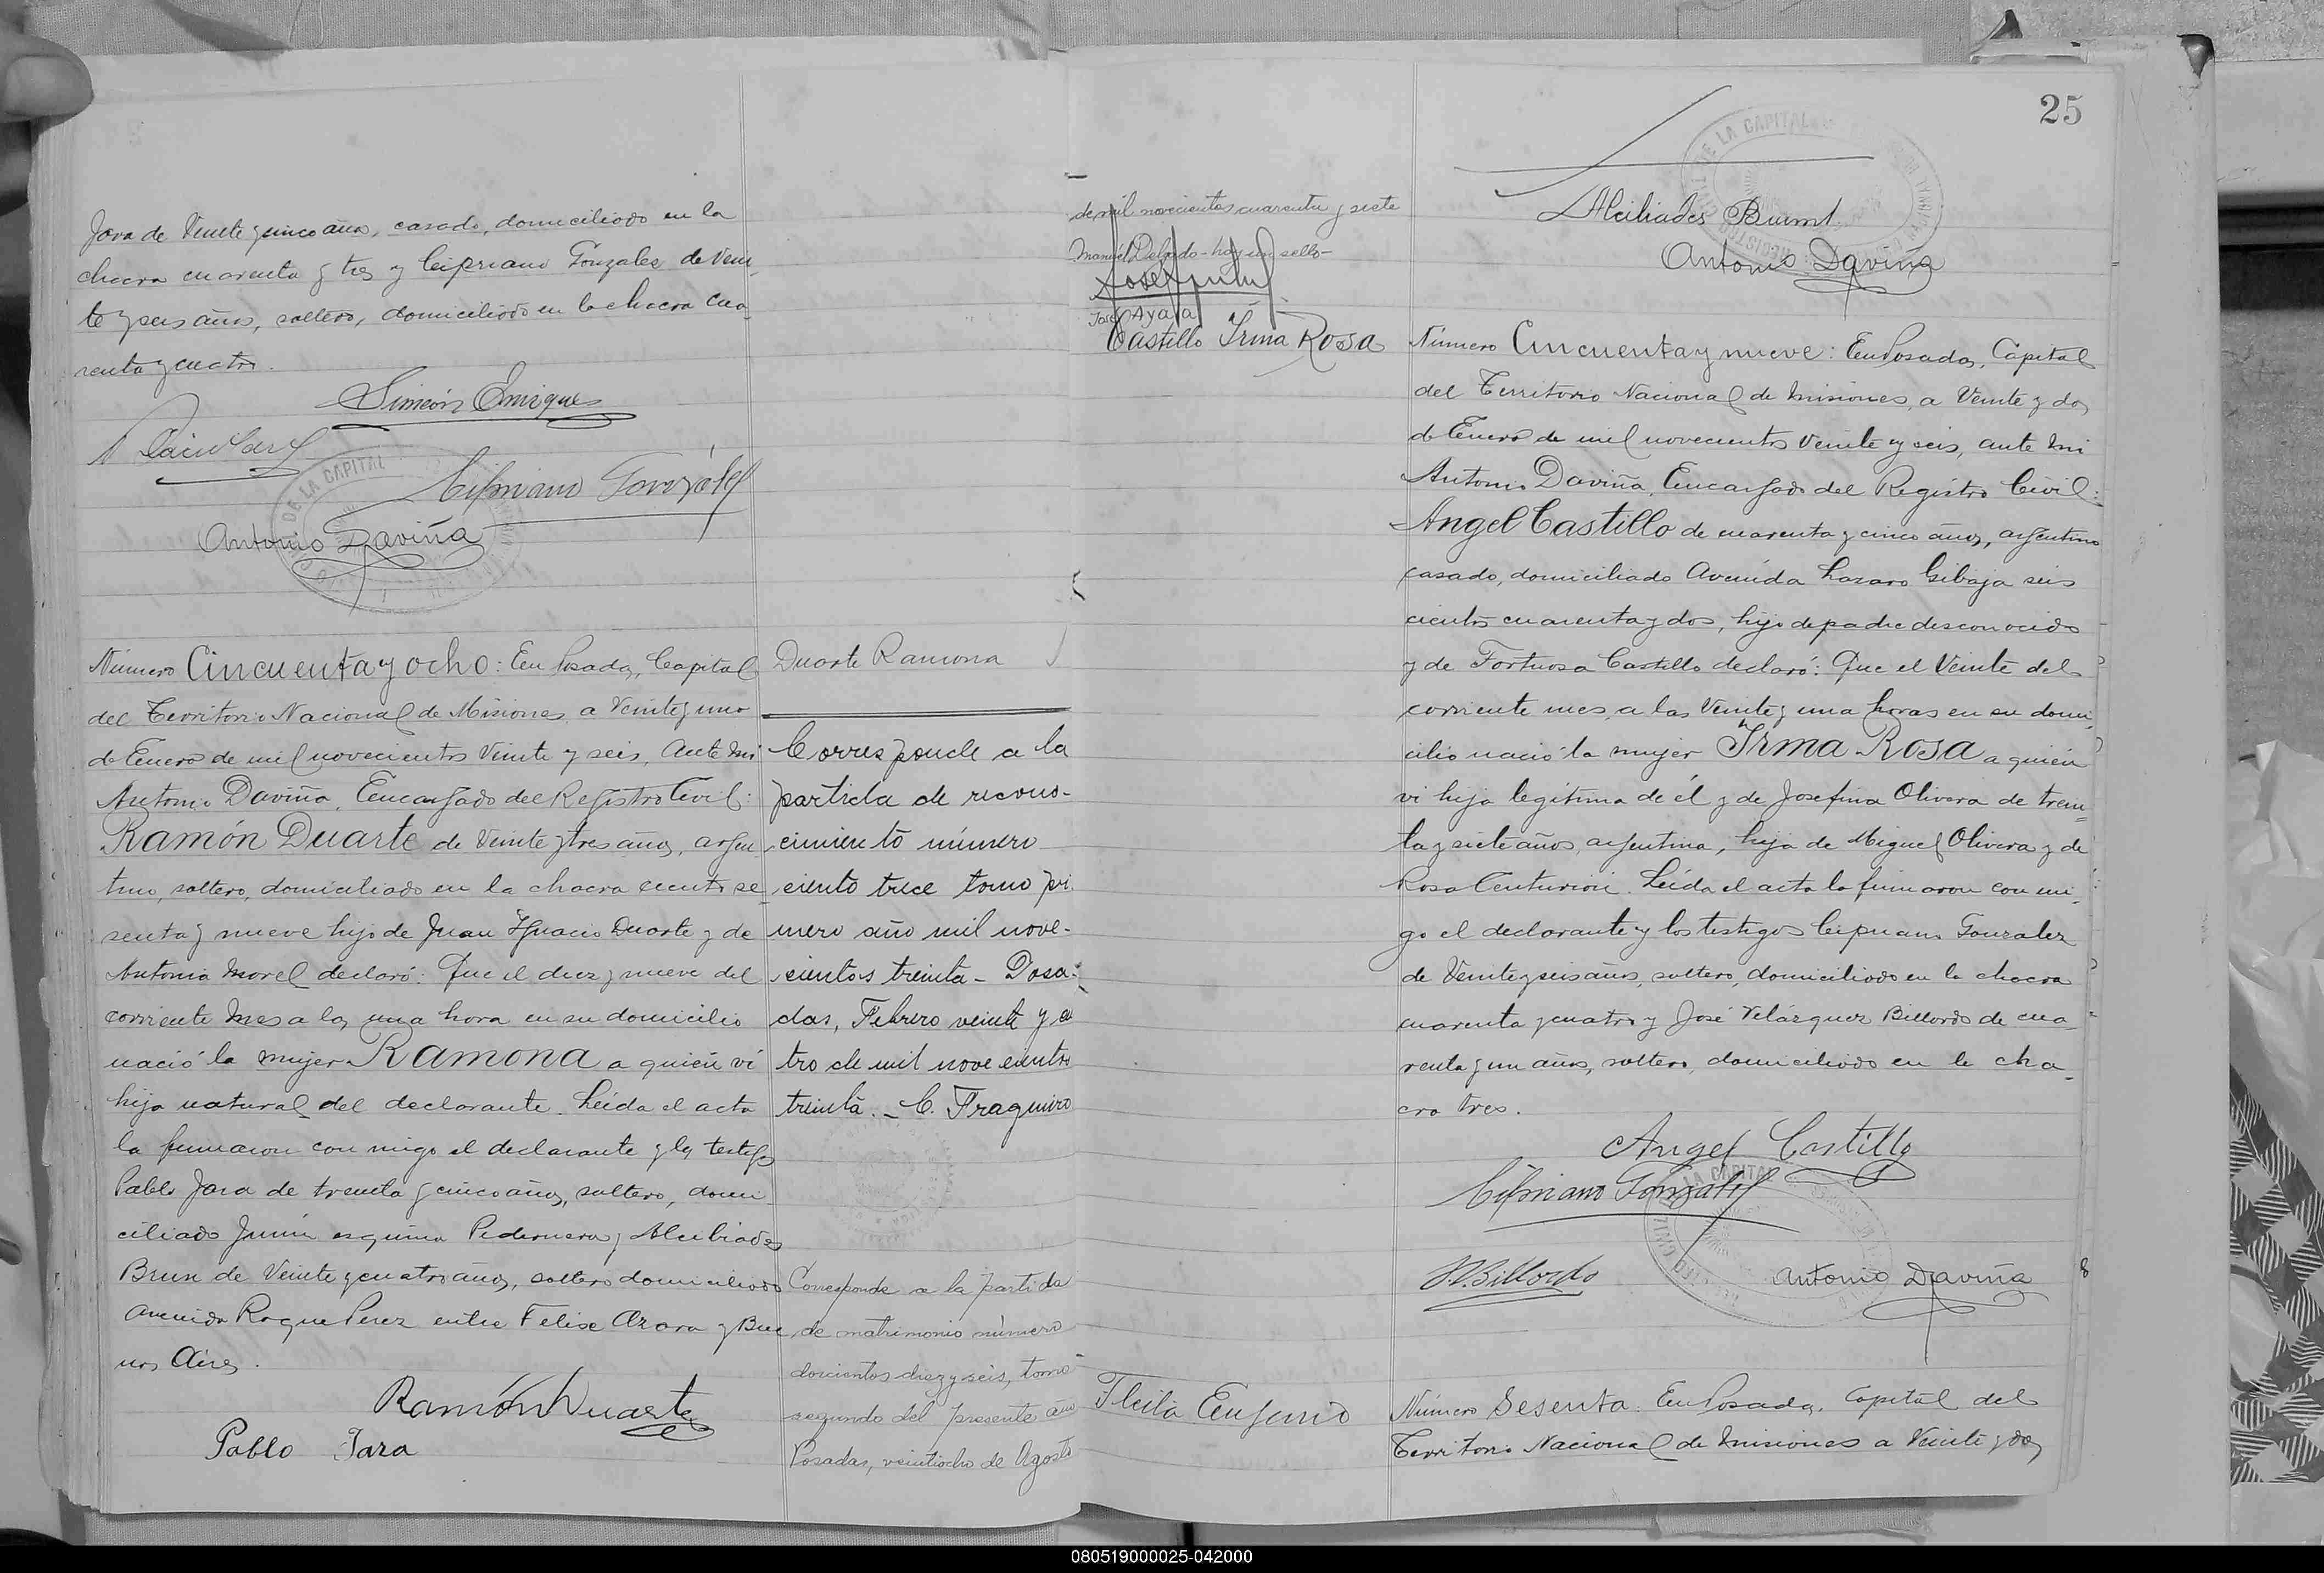 Jara de Veinte y cinco años, casado, domiciliado en la
chacra cuarenta y tres y Cipriano Gonzalez de Vein
te y seis años, soltero, domiciliado en la chacra cua
renta y cuatro.
Simeón Enrique
Cipriano González
DE LA CAPITAL
Antonio Daviña
Número Cincuenta y ocho: En Posadas, Capital
del Territorio Nacional de Misiones, a Veinte y uno
de Enero de mil novecientos Veinte y seis, Ante mi
Antonio Daviña, Encargado del Registro Civil:
Ramón Duarte de Veinte y tres años, argen
tino, soltero, domiciliado en la chacra ciento se
senta y nueve hijo de Juan Ignacio Duarte y de
Antonia Morel declaró: Que el diez y nueve del
corriente mes a las una hora en su domicilio
nació la mujer Ramona a quién vi
hija natural del declarante. Leída el acta
la firmaron con migo el declarante y los testigos
Pablo Jara de treinta y cinco años, soltero, domi
ciliado Junín esquina Pedernera y Alcibiades
Brun de Veinte y cuatro años, soltero domiciliado
Avenida Roque Perez entre Felix Azara y Bue
nos Aires.
Ramón Duarte
Pablo Jara
Duarte Ramona
Corresponde a la
partida de recono-
cimiento número
ciento trece tomo pri
mero año mil nove-
cientos treinta - Posa-
das, Febrero veinte y cua
tro de mil novecientos
treinta. - C. Fragueiro
Corresponde a la partida
de matrimonio número
doscientos diez y seis, tomo
segundo del presente año
Posadas, veintiocho de Agosto
25
de mil novecientos cuarenta y siete
Manuel Delgado - hay un sello -
José Ayala
Alcibiades Brunt
Antonio Daviña
Castillo Irma Rosa
Número Cincuenta y nueve: En Posadas, Capital
del Territorio Nacional de Misiones, a Veinte y dos
de Enero de mil novecientos Veinte y seis, ante mi
Antonio Daviña, Encargado del Registro Civil:
Angel Castillo de cuarenta y cinco años, argentino
casado, domiciliado Avenida Lazaro Gibaja seis
cientos cuarenta y dos, hijo de padre desconocido
y de Fortuosa Castillo declaró: Que el Veinte del
corriente mes, a las Veinte y una horas en su domi
cilio nació la mujer Irma Rosa a quién
vi hija legítima de él y de Josefina Olivera de trein
ta y siete años, argentina, hija de Miguel Olivera y de
Rosa Centurión. Leída el acta la firmaron con mi
go el declarante y los testigos Cipriano Gonzalez
de Veinte y seis años, soltero, domiciliado en la chacra
cuarenta y cuatro y José Velázquez Billordo de cua
renta y un años, soltero, domiciliado en la cha
cra tres.
Angel Castillo
Cipriano González
J.V. Billordo
Antonio Daviña
Eugenio
Número Sesenta: En Posadas, Capital del
Territorio Nacional de Misiones a Veinte y dos
080519000025-042000